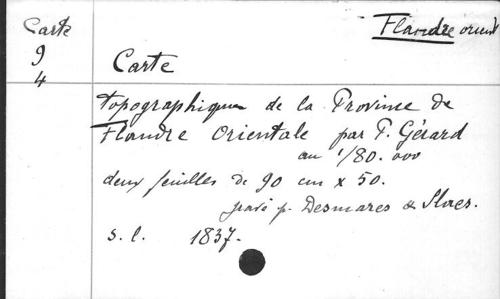 Carte
9
4
Flandre orient
Carte
topographique de la Province de
Flandre Orientale par P. Gérard
au 1/80.000
deux feuilles de 90 cm x 50.
gravé p. Desmares &
s.l. 1837.